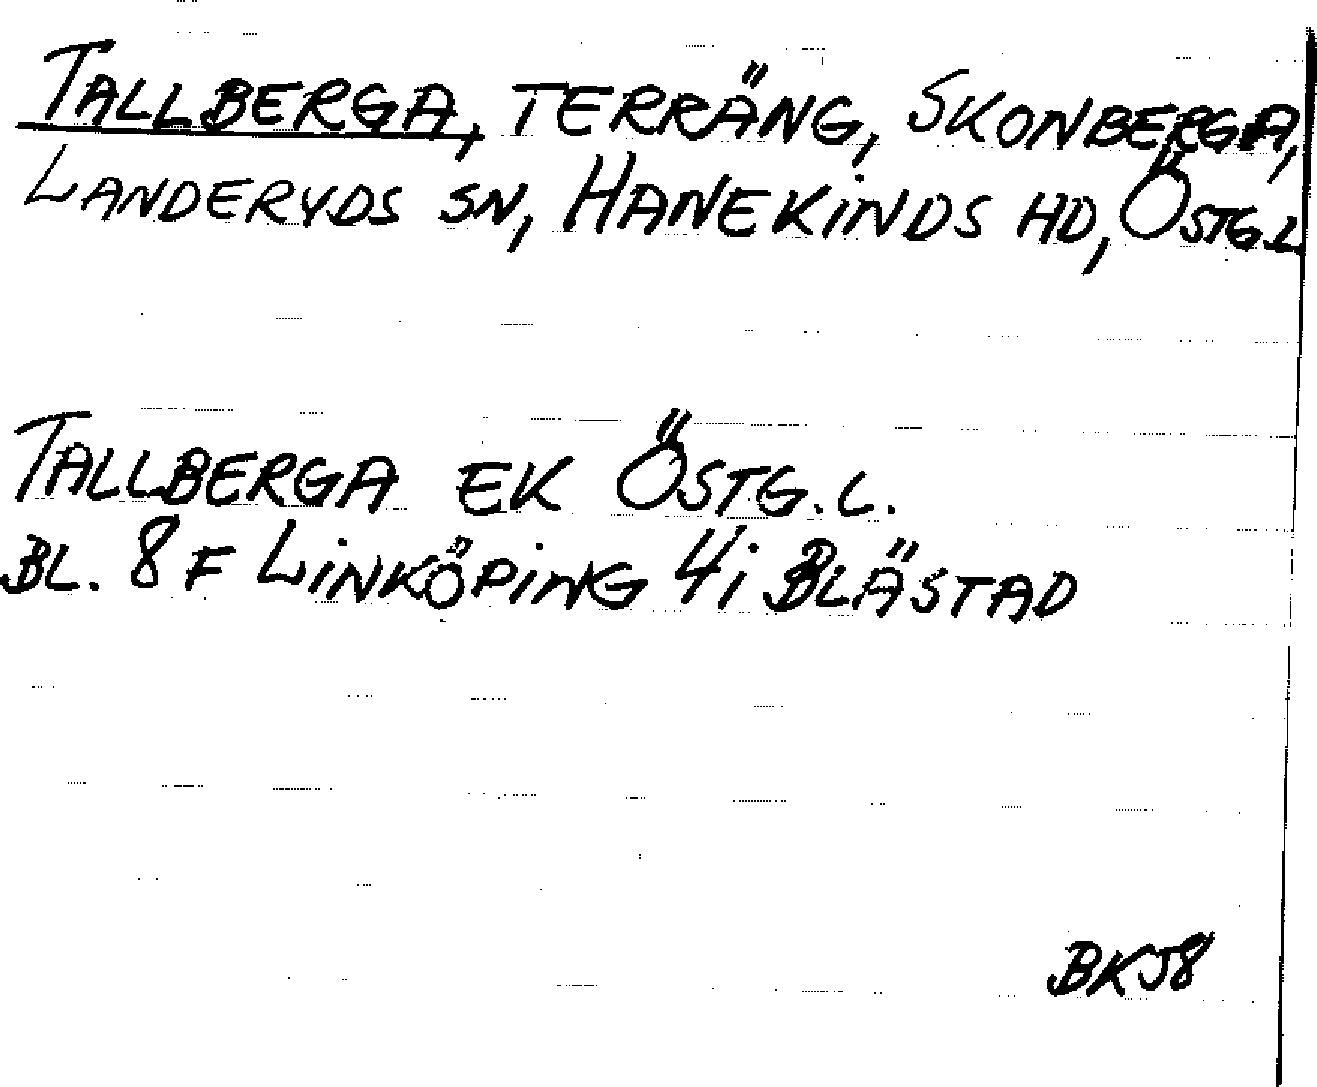 TALLBERGA, TERRÄNG, SKONBERGA,
LANDERYDS SN, HANEKINDS HD, ÖSTG.L
TALLBERGA EK ÖSTG.L.
BL. 8F LINKÖPING 4i BLÄSTAD
BKJ8